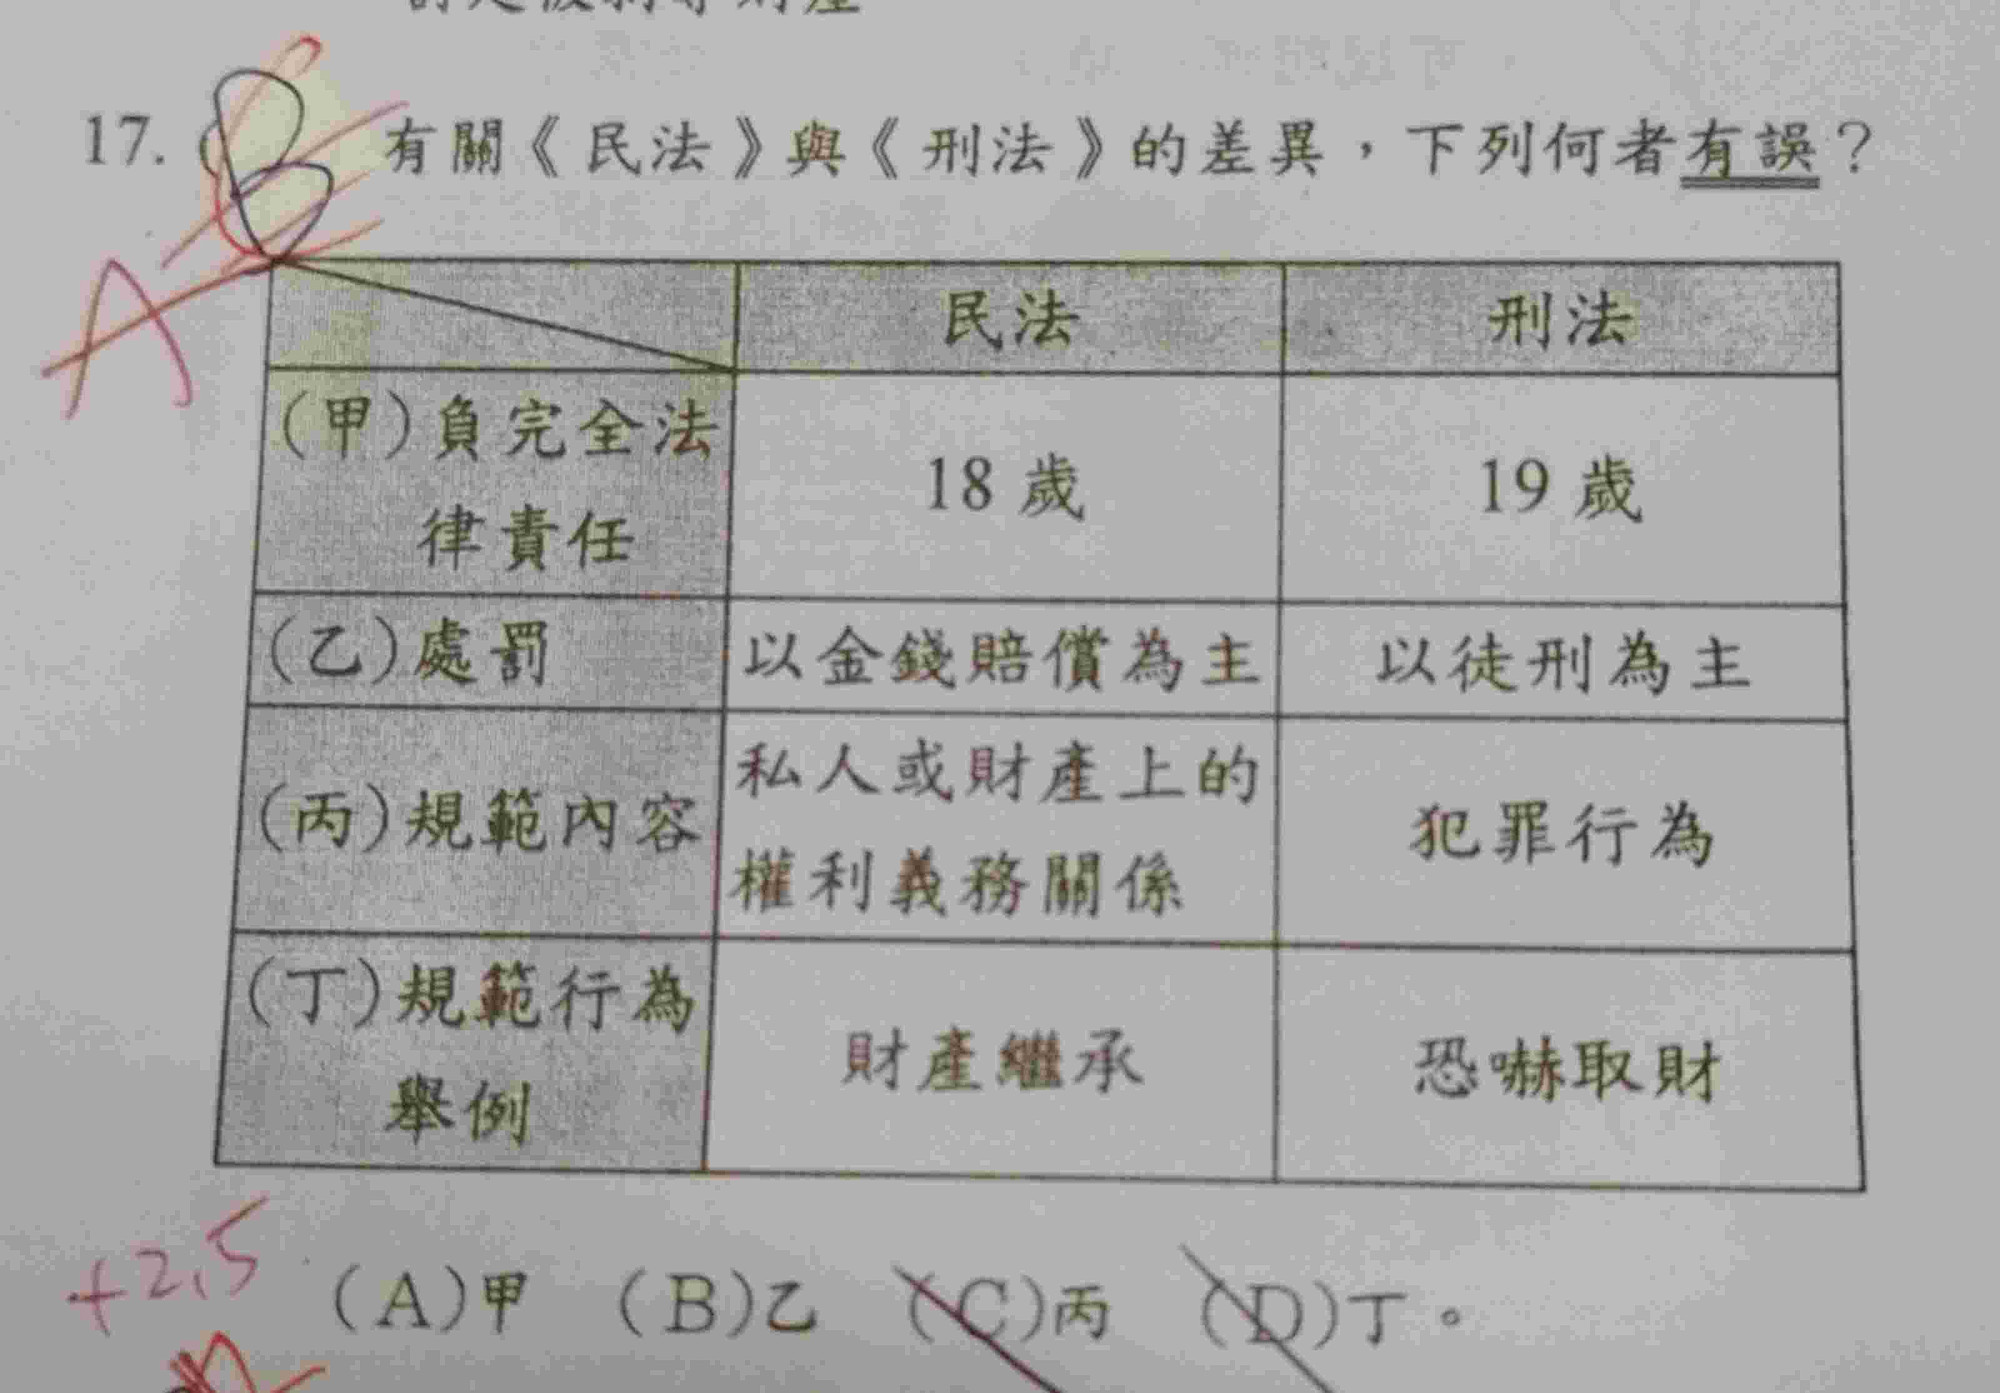 17.
B
有關《民法》與《刑法》的差異，下列何者有誤？
A
民法
刑法
(甲)負完全法
律責任
18 歲
19 歲
(乙)處罰
以金錢賠償為主
以徒刑為主
(丙)規範內容
私人或財產上的
權利義務關係
犯罪行為
(丁)規範行為
舉例
財產繼承
恐嚇取財
+2.5
(A)甲 (B)乙 (C)丙 (D)丁。